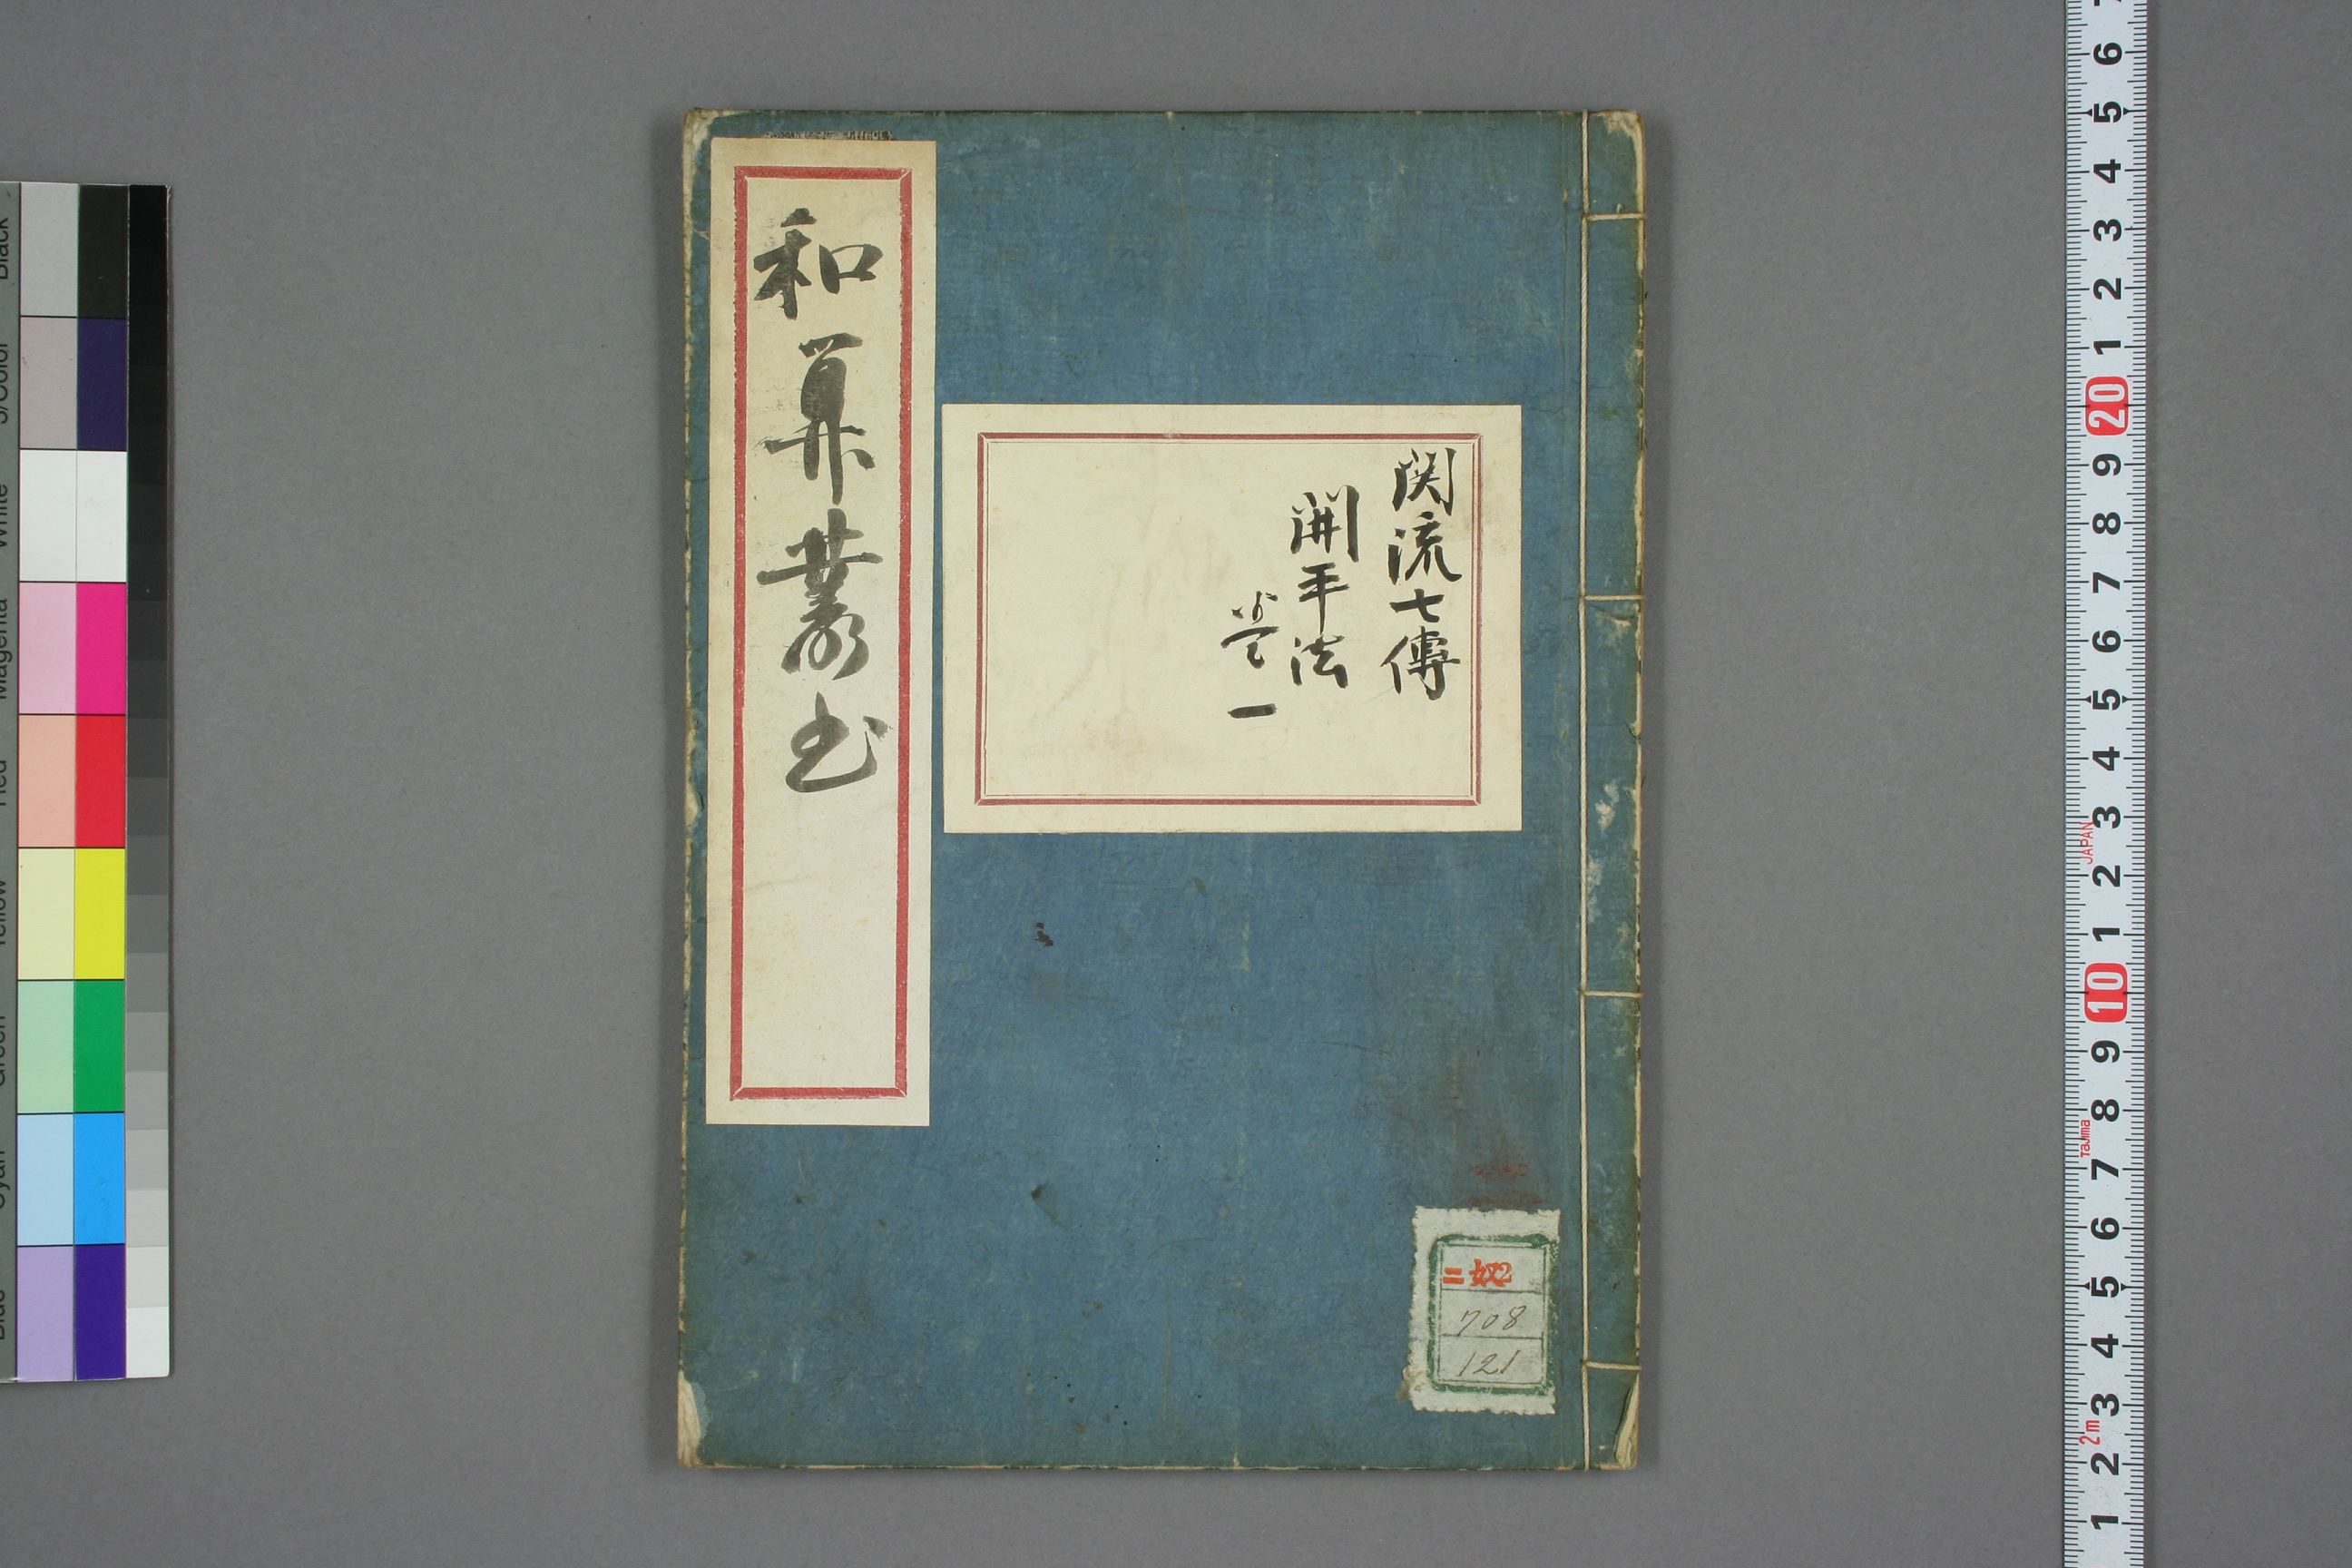 和算叢書
関流七傳
開平法
巻一
二奴2
708
121
7
6
5
4
3
2
1
20
9
8
7
6
5
4
3
JAPAN
2
1
10
9
8
Tajima
7
6
5
4
3
2m
2
1
Black
3/Color
White
Magenta
Red
Yellow
Green
Cyan
Blue